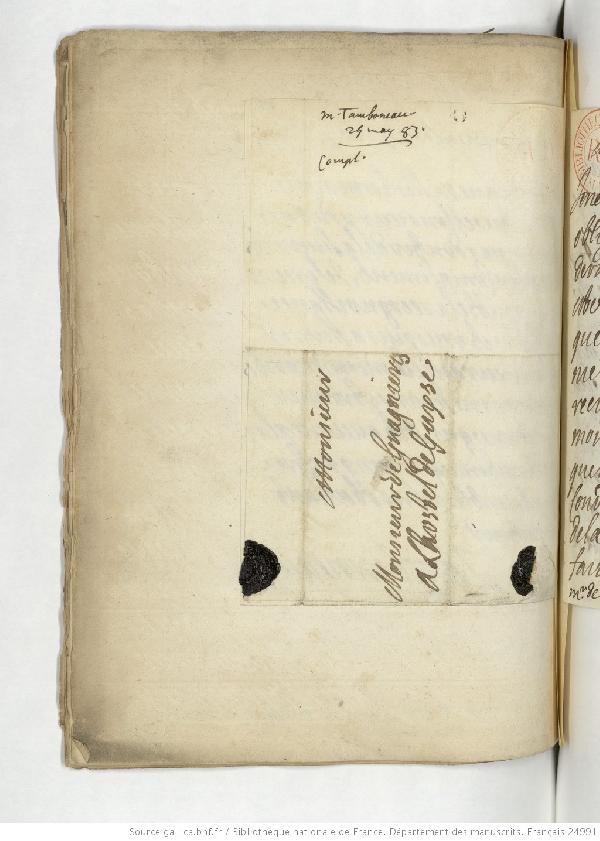 mr Tambonneau
29 may 83.
Compl.
Monsieur
Monsieur de Gaignieres
A Lhostel de Guyse
que
me
mon
que
de la
fair
mr de
Source gallica.bnf.fr / Bibliothèque nationale de France. Département des manuscrits. Français 24991